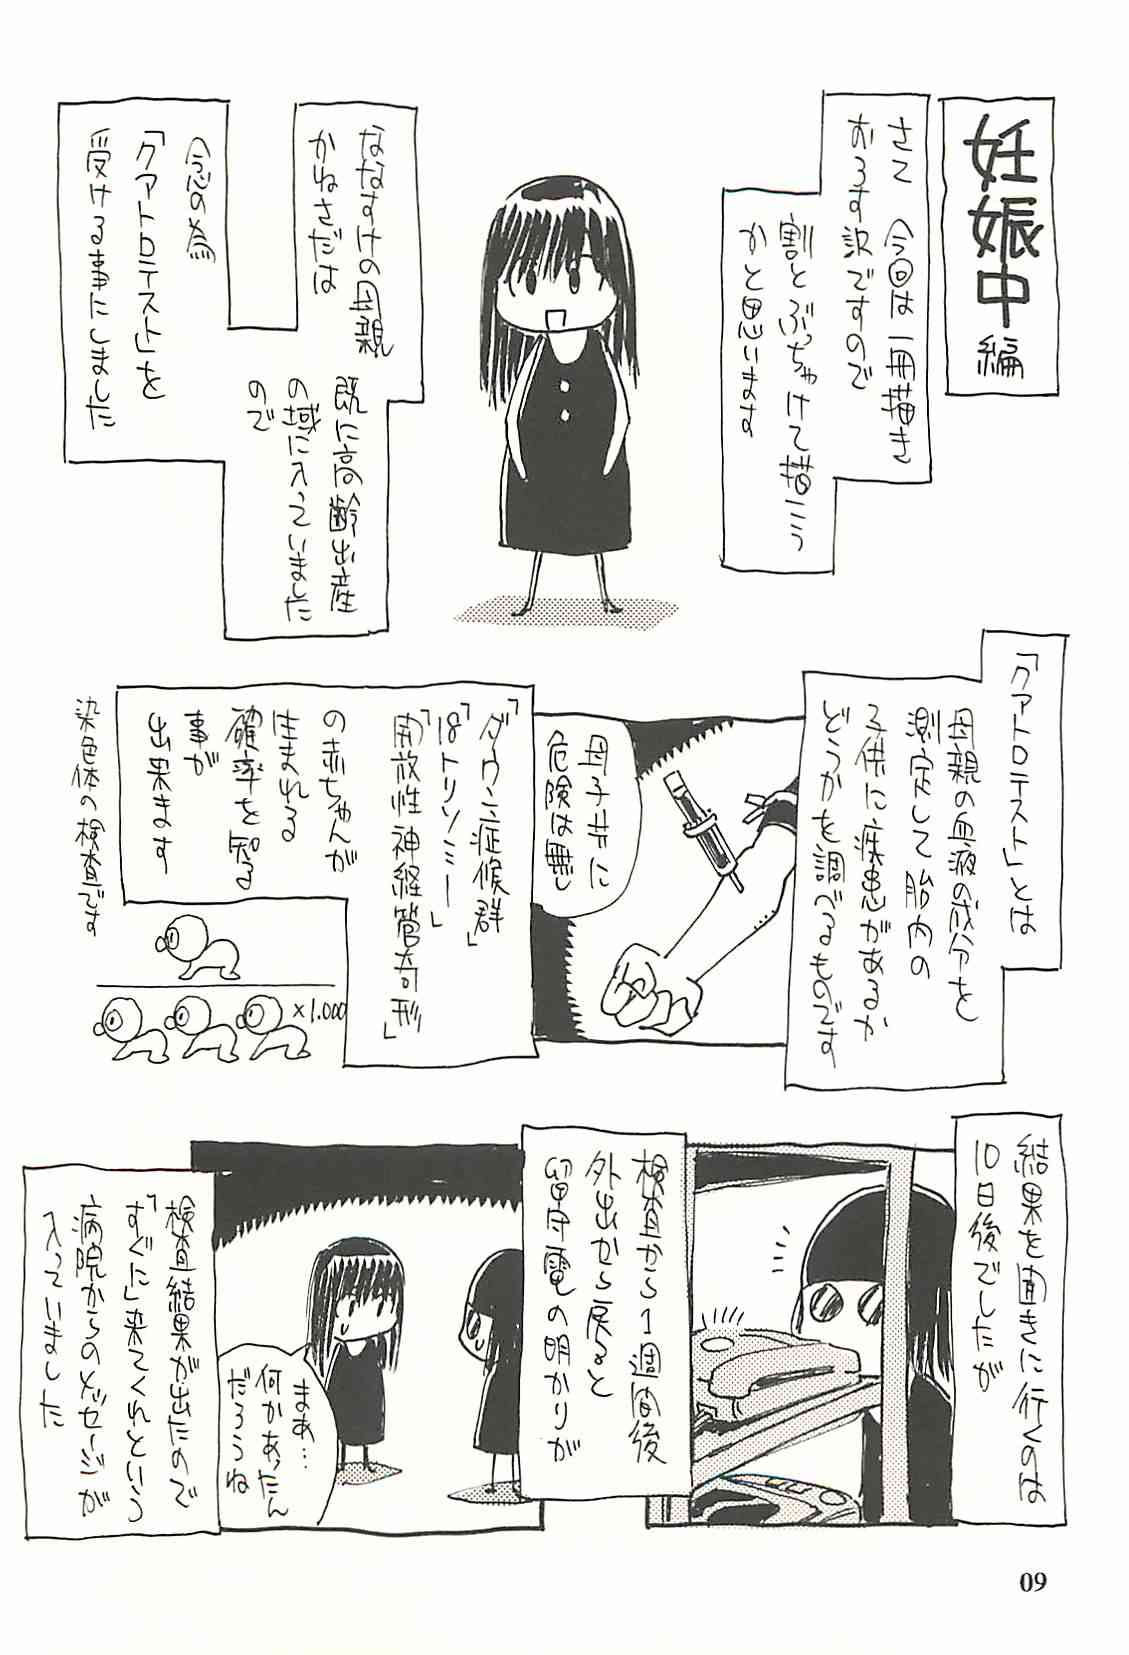 妊娠中編
さて 今回は一冊描き
おろす訳ですので
割とぶっちゃけて描こう
かと思います
ななすけの母親
かねさだは
既に高齢出産
の域に入っていました
ので
念の為
「クアトロテスト」を
受ける事にしました
「クアトロテスト」とは
母親の血液の成分を
測定して胎内の
子供に疾患があるか
どうかを調べるものです
母子共に
危険は無し
「ダウン症候群」
「18トリソミー」
「開放性神経管奇形」
の赤ちゃんが
生まれる
確率を知る
事が
出来ます
染色体の検査です
×1.000
結果を聞きに行くのは
10日後でしたが
検査から1週間後
外出から戻ると
留守電の明かりが
まあ…
何かあったん
だろうね
検査結果が出たので
「すぐに」来てくれという
病院からのメッセージが
入っていました
09